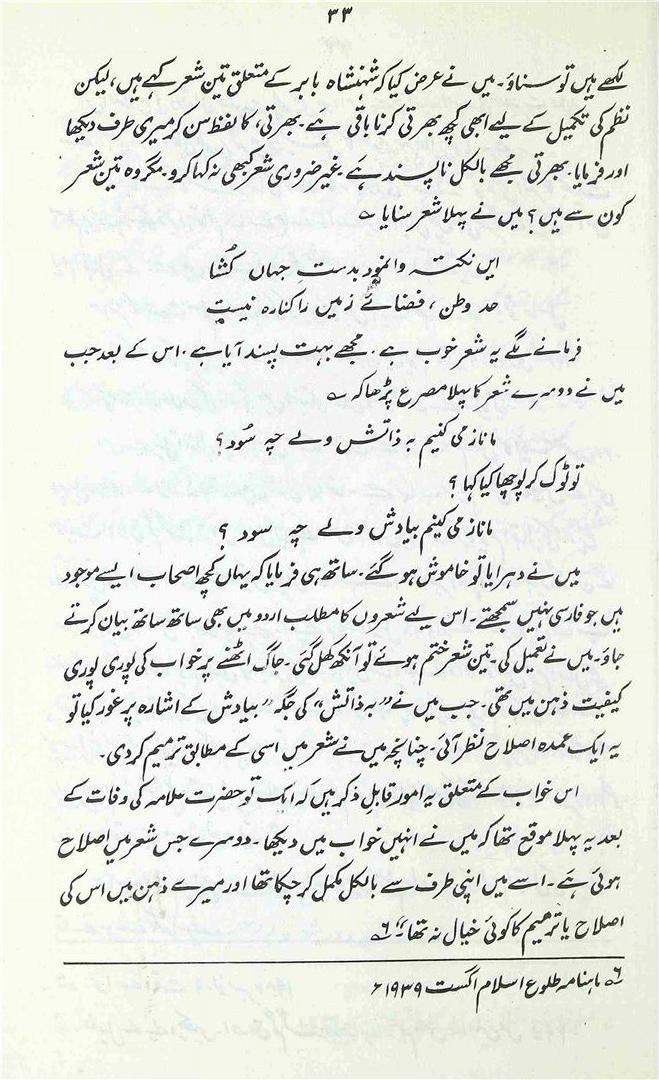 ۳۳
لکھے ہیں تو سناؤ۔ میں نے عرض کیا کہ شہنشاہ بابر کے متعلق تین شعر کہے ہیں، لیکن
نظم کی تکمیل کے لیے ابھی کچھ بھرتی کرنا باقی ہے۔ بھرتی، کا لفظ سن کر میری طرف دیکھا
اور فرمایا۔ بھرتی مجھے بالکل ناپسند ہے۔ غیر ضروری شعر کبھی نہ کہا کرو۔ مگر وہ تین شعر
کون سے ہیں؟ میں نے پہلا شعر سنایا ؎
ایں نکتہ وا نمود بدستِ جہاں کُشا
حد وطن، فضائے زمیں را کنارہ نیست
فرمانے لگے یہ شعر خوب ہے۔ مجھے بہت پسند آیا ہے۔ اس کے بعد جب
میں نے دوسرے شعر کا پہلا مصرع پڑھا کہ ؎
ما ناز می کنیم بہ ذاتش ولے چہ سُود؟
تو ٹوک کر پوچھا کیا کہا؟
ما ناز می کنیم بیادش ولے چہ سود ؟
میں نے دہرایا تو خاموش ہو گئے۔ ساتھ ہی فرمایا کہ یہاں کچھ اصحاب ایسے موجود
ہیں جو فارسی نہیں سمجھتے۔ اس لیے شعروں کا مطلب اردو میں بھی ساتھ ساتھ بیان کرتے
جاؤ۔ میں نے تعمیل کی۔ تین شعر ختم ہوئے تو آنکھ کھل گئی۔ جاگ اٹھنے پر خواب کی پوری پوری
کیفیت ذہن میں تھی۔ جب میں نے "بہ ذاتش" کی جگہ "بیادش کے اشارہ پر غور کیا تو
یہ ایک عمدہ اصلاح نظر آئی۔ چنانچہ میں نے شعر میں اسی کے مطابق ترمیم کر دی۔
اس خواب کے متعلق یہ امور قابلِ ذکر ہیں کہ ایک تو حضرت علامہ کی وفات کے
بعد یہ پہلا موقع تھا کہ میں نے انہیں خواب میں دیکھا۔ دوسرے جس شعر میں اصلاح
ہوئی ہے۔ اسے میں اپنی طرف سے بالکل مکمل کر چکا تھا اور میرے ذہن میں اس کی
اصلاح یا ترمیم کا کوئی خیال نہ تھا۔" ۶؎
۶؎ ماہنامہ طلوع اسلام اگست ۱۹۳۹ء